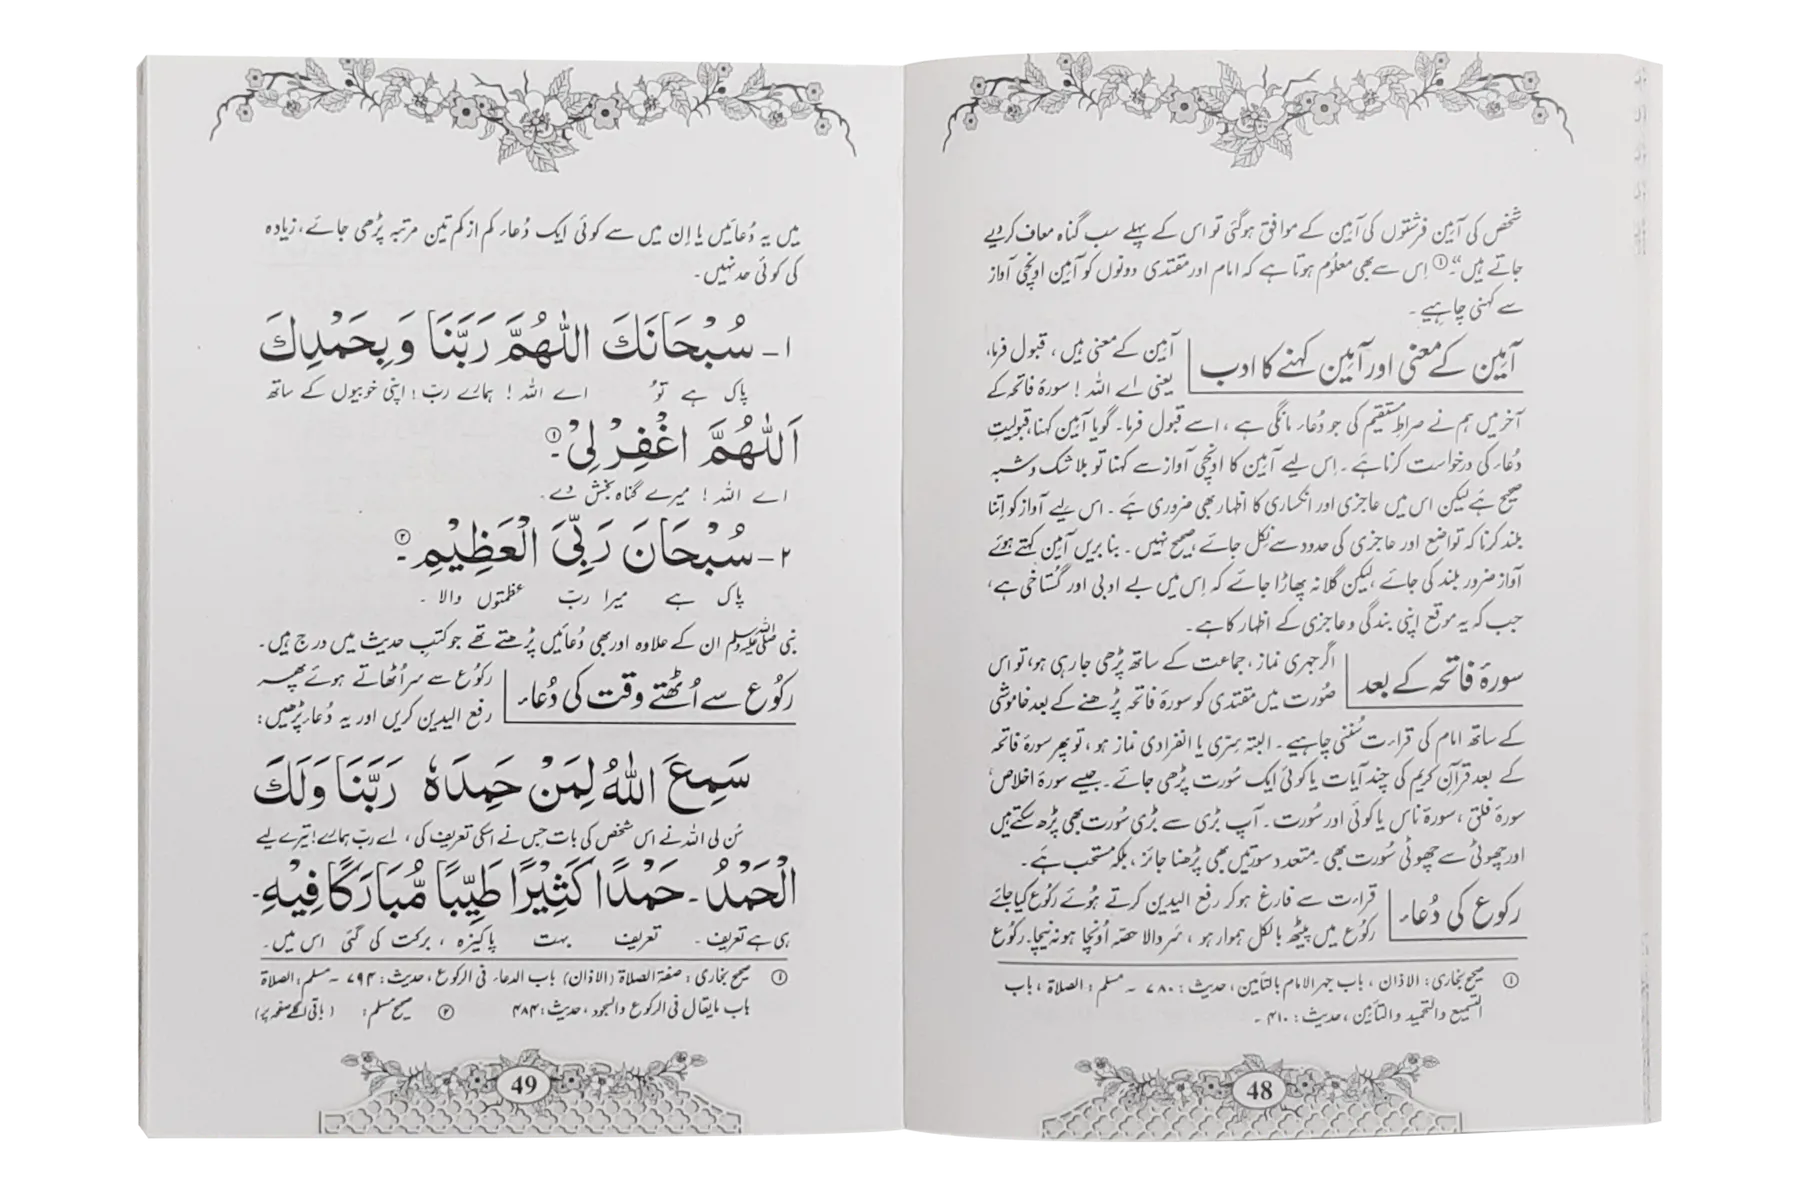 شخص کی آمین فرشتوں کی آمین کے موافق ہوگئی تو اس کے پہلے سب گناہ معاف کر دیے
جاتے ہیں“۔① اِس سے بھی معلُوم ہوتا ہے کہ امام اور مقتدی دونوں کو آمین اونچی آواز
سے کہنی چاہیے۔
آمین کے معنی اور آمین کہنے کا ادب
آمین کے معنی ہیں، قبول فرما،
یعنی اے اللہ! سورۂ فاتحہ کے
آخر میں ہم نے صراطِ مستقیم کی جو دُعاء مانگی ہے، اسے قبول فرما۔ گویا آمین کہنا، قبولیتِ
دُعاء کی درخواست کرنا ہے۔ اِس لیے آمین کا اونچی آواز سے کہنا تو بلا شک و شبہ
صحیح ہے لیکن اس میں عاجزی اور انکساری کا اظہار بھی ضروری ہے۔ اس لیے آواز کو اِتنا
بلند کرنا کہ تواضع اور عاجزی کی حدود سے نکل جائے، صحیح نہیں۔ بنا بریں آمین کہتے ہوئے
آواز ضرور بلند کی جائے، لیکن گلا نہ پھاڑا جائے کہ اِس میں بے ادبی اور گستاخی ہے،
جب کہ یہ موقع اپنی بندگی و عاجزی کے اظہار کا ہے۔
سورۂ فاتحہ کے بعد
اگر جہری نماز، جماعت کے ساتھ پڑھی جا رہی ہو، تو اس
صُورت میں مقتدی کو سورۂ فاتحہ پڑھنے کے بعد خاموشی
کے ساتھ امام کی قراءت سُننی چاہیے۔ البتہ سِرّی یا انفرادی نماز ہو، تو پھر سورۂ فاتحہ
کے بعد قرآنِ کریم کی چند آیات یا کوئی ایک سُورت پڑھی جائے۔ جیسے سورۂ اخلاص،
سورۂ فلق، سورۂ ناس یا کوئی اور سُورت۔ آپ بڑی سے بڑی سُورت بھی پڑھ سکتے ہیں
اور چھوٹی سے چھوٹی سُورت بھی۔ متعدد سورتیں بھی پڑھنا جائز، بلکہ مستحب ہے۔
رکوع کی دُعاء
قراءت سے فارغ ہو کر رفع الیدین کرتے ہُوئے رکُوع کیا جائے
رکُوع میں پیٹھ بالکل ہموار ہو، سَر والا حصّہ اُونچا ہو نہ نیچا۔ رکُوع
① صحیح بخاری: الاذان، باب جہر الامام بالتأمین، حدیث: ۷۸۰۔ مسلم: الصلاة، باب
التسمیع والتحمید والتأمین، حدیث: ۴۱۰۔
48
میں یہ دُعائیں یا اِن میں سے کوئی ایک دُعاء کم از کم تین مرتبہ پڑھی جائے، زیادہ
کی کوئی حد نہیں۔
۱۔ سُبْحَانَكَ اللّٰهُمَّ رَبَّنَا وَبِحَمْدِكَ
پاک ہے تُو اے اللہ! ہمارے ربّ! اپنی خوبیوں کے ساتھ
اَللّٰهُمَّ اغْفِرْ لِيْ۔①
اے اللہ! میرے گناہ بخش دے۔
۲۔ سُبْحَانَ رَبِّيَ الْعَظِيْمِ۔②
پاک ہے میرا ربّ عظمتوں والا۔
نبی ﷺ ان کے علاوہ اور بھی دُعائیں پڑھتے تھے جو کتبِ حدیث میں درج ہیں۔
رکُوع سے اُٹھتے وقت کی دُعاء
رکُوع سے سر اُٹھاتے ہوئے پھر
رفع الیدین کریں اور یہ دُعاء پڑھیں:
سَمِعَ اللّٰهُ لِمَنْ حَمِدَهٗ رَبَّنَا وَلَكَ
سُن لی اللہ نے اس شخص کی بات جس نے اسکی تعریف کی، اے ربّ ہمارے! تیرے لیے
الْحَمْدُ۔ حَمْدًا كَثِيْرًا طَيِّبًا مُّبَارَكًا فِيْهِ۔
ہی ہے تعریف۔ تعریف بہت پاکیزہ، برکت کی گئی اس میں۔
① صحیح بخاری: صفة الصلاة (الاذان) باب الدعاء فی الرکوع، حدیث: ۷۹۴۔ مسلم: الصلاة
باب ما یقال فی الرکوع والسجود، حدیث: ۴۸۴ ② صحیح مسلم: (باقی اگلے صفحہ پر)
49